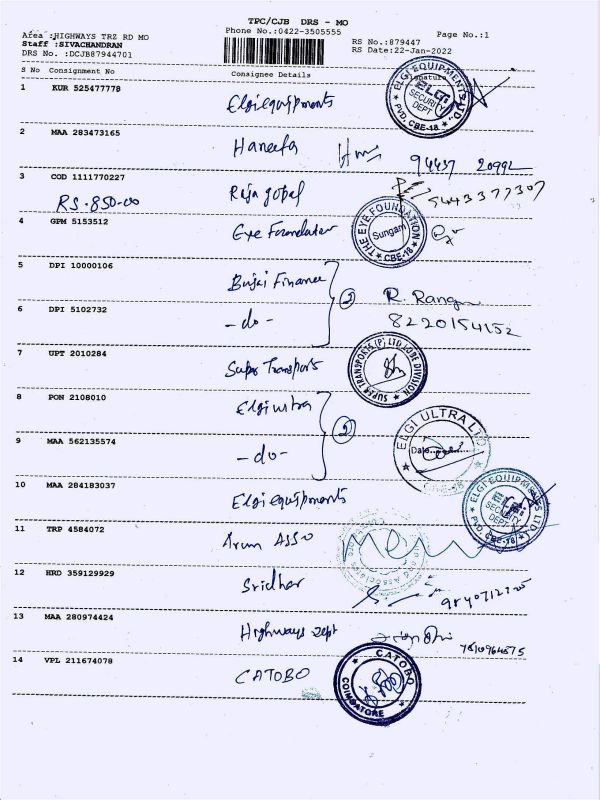 TPC/CJB DRS - MO
Area :HIGHWAYS TRZ RD MO
Phone No.:0422-3505555
Page No.:1
Staff :SIVACHANDRAN
RS No.:879447
DRS No. :DCJB87944701
RS Date:22-Jan-2022
S No Consignment No Consignee Details Signature
1 KUR 525477778 Elgi equipments
ELGI EQUIPMENTS LTD., ELGi SECURITY DEPT PVD, CBE-18
2 MAA 283473165 Haneefa 94437 20992
3 COD 1111770227 Rajagopal 9443377307
RS. 850-00
4 GPM 5153512 Eye Foundation
THE EYE FOUNDATION Sungam CBE-18
5 DPI 10000106 Bajaj Finance
2 R. Ranga
6 DPI 5102732 -do- 8220154152
7 UPT 2010284 Super Transports
SUPER TRANSPORTS (P) LTD. CBE DIVISION
8 PON 2108010 Elgi ultra
2
ELGI ULTRA LTD Date CBE-18
9 MAA 562135574 -do-
10 MAA 284183037 Elgi equipments
ELGI EQUIPMENTS LTD., ELGi SECURITY DEPT PVD, CBE-18
11 TRP 4584072 Arun ASSO
12 HRD 359129929 Sridhar
13 MAA 280974424 Highways dept
14 VPL 211674078 CATOBO
CATOBO COIMBATORE